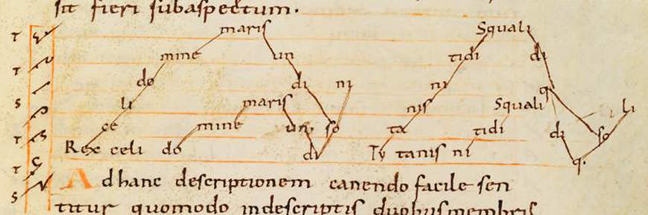 sit fieri subaspectum.
T maris Squali
mine un tidi di
T do di ni ni q:
S li maris nis Squali li
T ce mine un so ta tidi di so
Rex celi do di Ty tanis ni q:
T
Ad hanc descriptionem canendo facile sen
S
titur quomodo indescriptis duobus membris